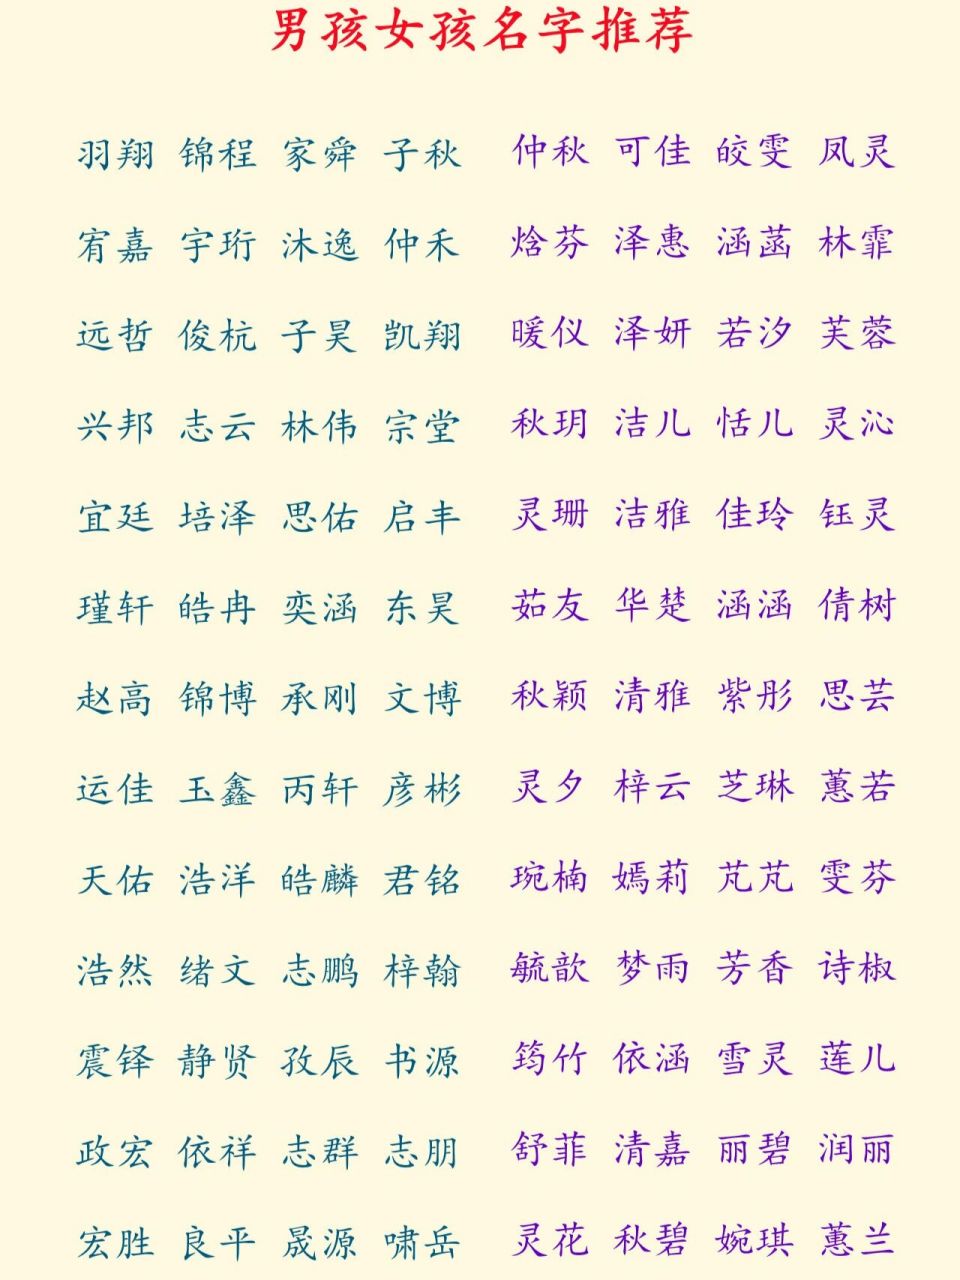 男孩女孩名字推荐
羽翔 锦程 家舜 子秋 仲秋 可佳 皎雯 凤灵
宥嘉 宇珩 沐逸 仲禾 焓芬 泽惠 涵菡 林霏
远哲 俊杭 子昊 凯翔 暖仪 泽妍 若汐 芙蓉
兴邦 志云 林伟 宗堂 秋玥 洁儿 恬儿 灵沁
宜廷 培泽 思佑 启丰 灵珊 洁雅 佳玲 钰灵
瑾轩 皓冉 奕涵 东昊 茹友 华楚 涵涵 倩树
赵高 锦博 承刚 文博 秋颖 清雅 紫彤 思芸
运佳 玉鑫 丙轩 彦彬 灵夕 梓云 芝琳 蕙若
天佑 浩洋 皓麟 君铭 琬楠 嫣莉 芃芃 雯芬
浩然 绪文 志鹏 梓翰 毓歆 梦雨 芳香 诗椒
震铎 静贤 孜辰 书源 筠竹 依涵 雪灵 莲儿
政宏 依祥 志群 志朋 舒菲 清嘉 丽碧 润丽
宏胜 良平 晟源 啸岳 灵花 秋碧 婉琪 蕙兰